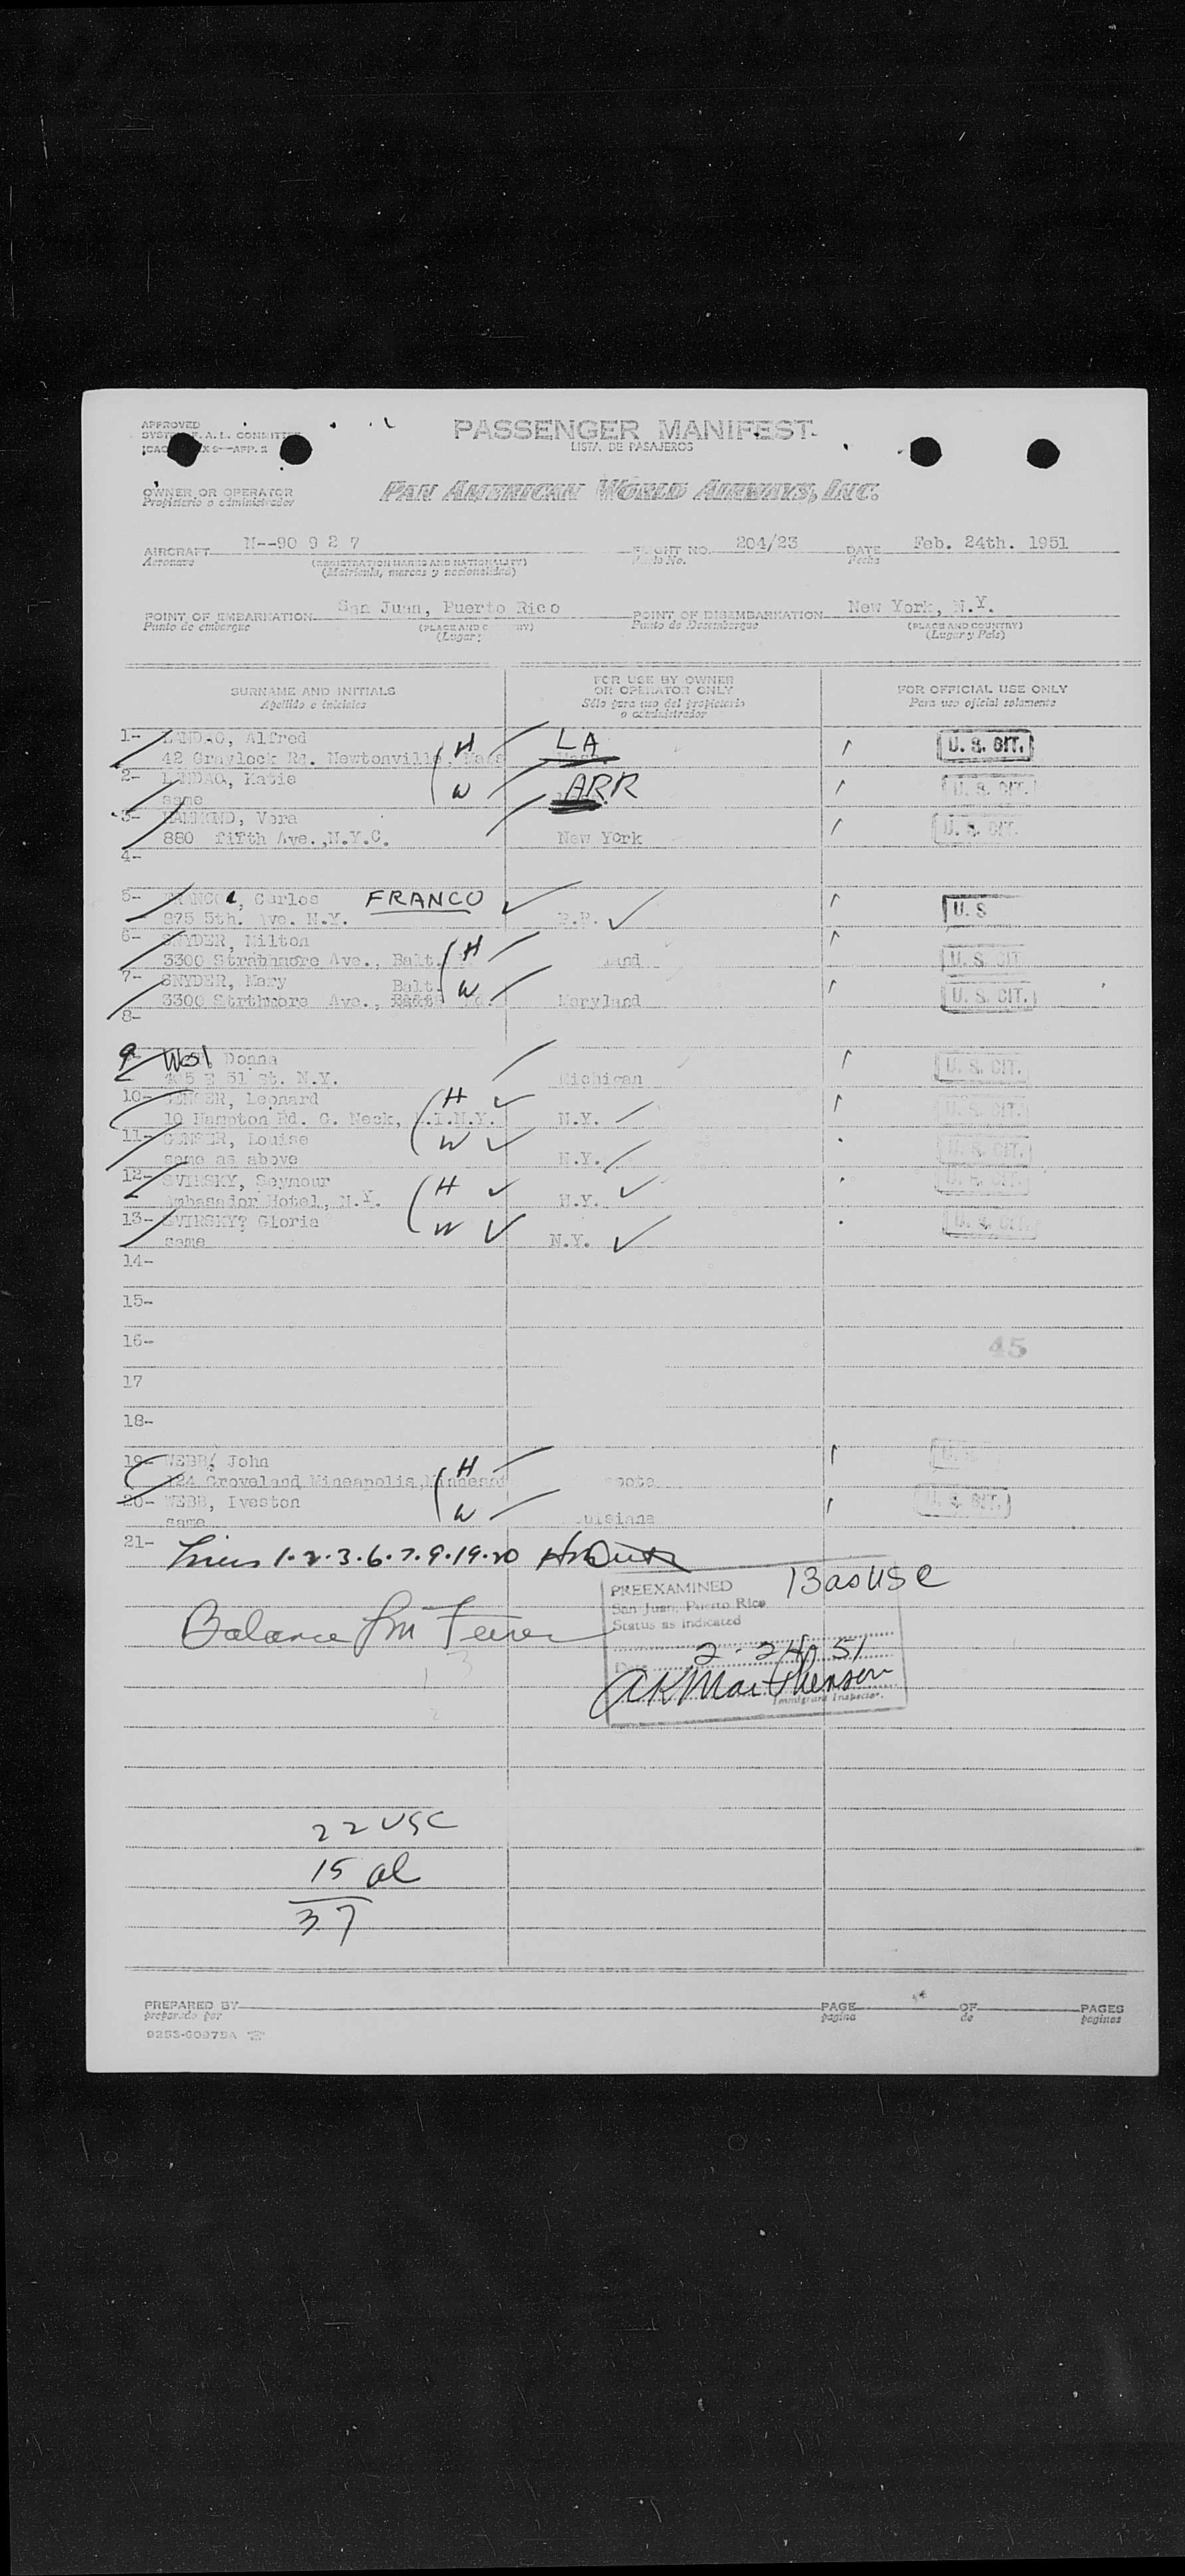 APPROVED
PASSENGER MANIFEST
LISTA DE PASAJEROS
OWNER OR OPERATOR
Propietario o administrador
PAN AMERICAN WORLD AIRWAYS, INC.
AIRCRAFT N--90 9 2 7 FLIGHT NO. 204/23 DATE Feb. 24th. 1951
Aeronave (REGISTRATION MARKS AND NATIONALITY) Vuelo No. Fecha
(Matrícula, marcas y nacionalidad)
POINT OF EMBARKATION San Juan, Puerto Rico POINT OF DISEMBARKATION New York, N.Y.
Punto de embarque (Lugar) Punto de Desembarque (PLACE AND COUNTRY)
(Lugar y País)
SURNAME AND INITIALS FOR USE BY OWNER OR OPERATOR ONLY FOR OFFICIAL USE ONLY
Apellido e iniciales Sólo para uso del propietario o administrador Para uso oficial solamente
1- Alfred H LA U. S. CIT.
42 Graylock Rd. Newtonville, Mass
2- Katie W ARR U. S. CIT.
same
3- Vera U. S. CIT.
880 fifth Ave.,N.Y.C. New York
4-
5- Carlos FRANCO U. S
875 5th. Ave. N.Y. P.R.
6- SNYDER, Milton H
3300 Ave., Balt. U. S. CIT
7- SNYDER, Mary Balt. W U. S. CIT.
3300 Strthmore Ave., Md. Maryland
8-
9 West Donna U. S. CIT.
E 51 St. N.Y. Michigan
10- Leonard H U. S. CIT.
10 Hampton Rd. G. Neck, L.I.N.Y. N.Y.
11- Louise W U. S. CIT.
same as above N.Y.
12- SVIRSKY, Seymour H U. S. CIT.
Ambasador Hotel, N.Y. N.Y.
13- SVIRSKY? Gloria W U. S. CIT.
same N.Y.
14-
15-
16-
45
17
18-
19- WEBB, John H
124 Groveland Mineapolis,
20- WEBB, Iveston W U. S. CIT.
same
21- Lines 1.2.3.6.7.9.19.20
13 as USC
PREEXAMINED
San Juan, Puerto Rico
Status as indicated
Balance
Date 2-24-51
Immigrant Inspector.
22 USC
15 al
37
PREPARED BY PAGE OF PAGES
preparado por página de páginas